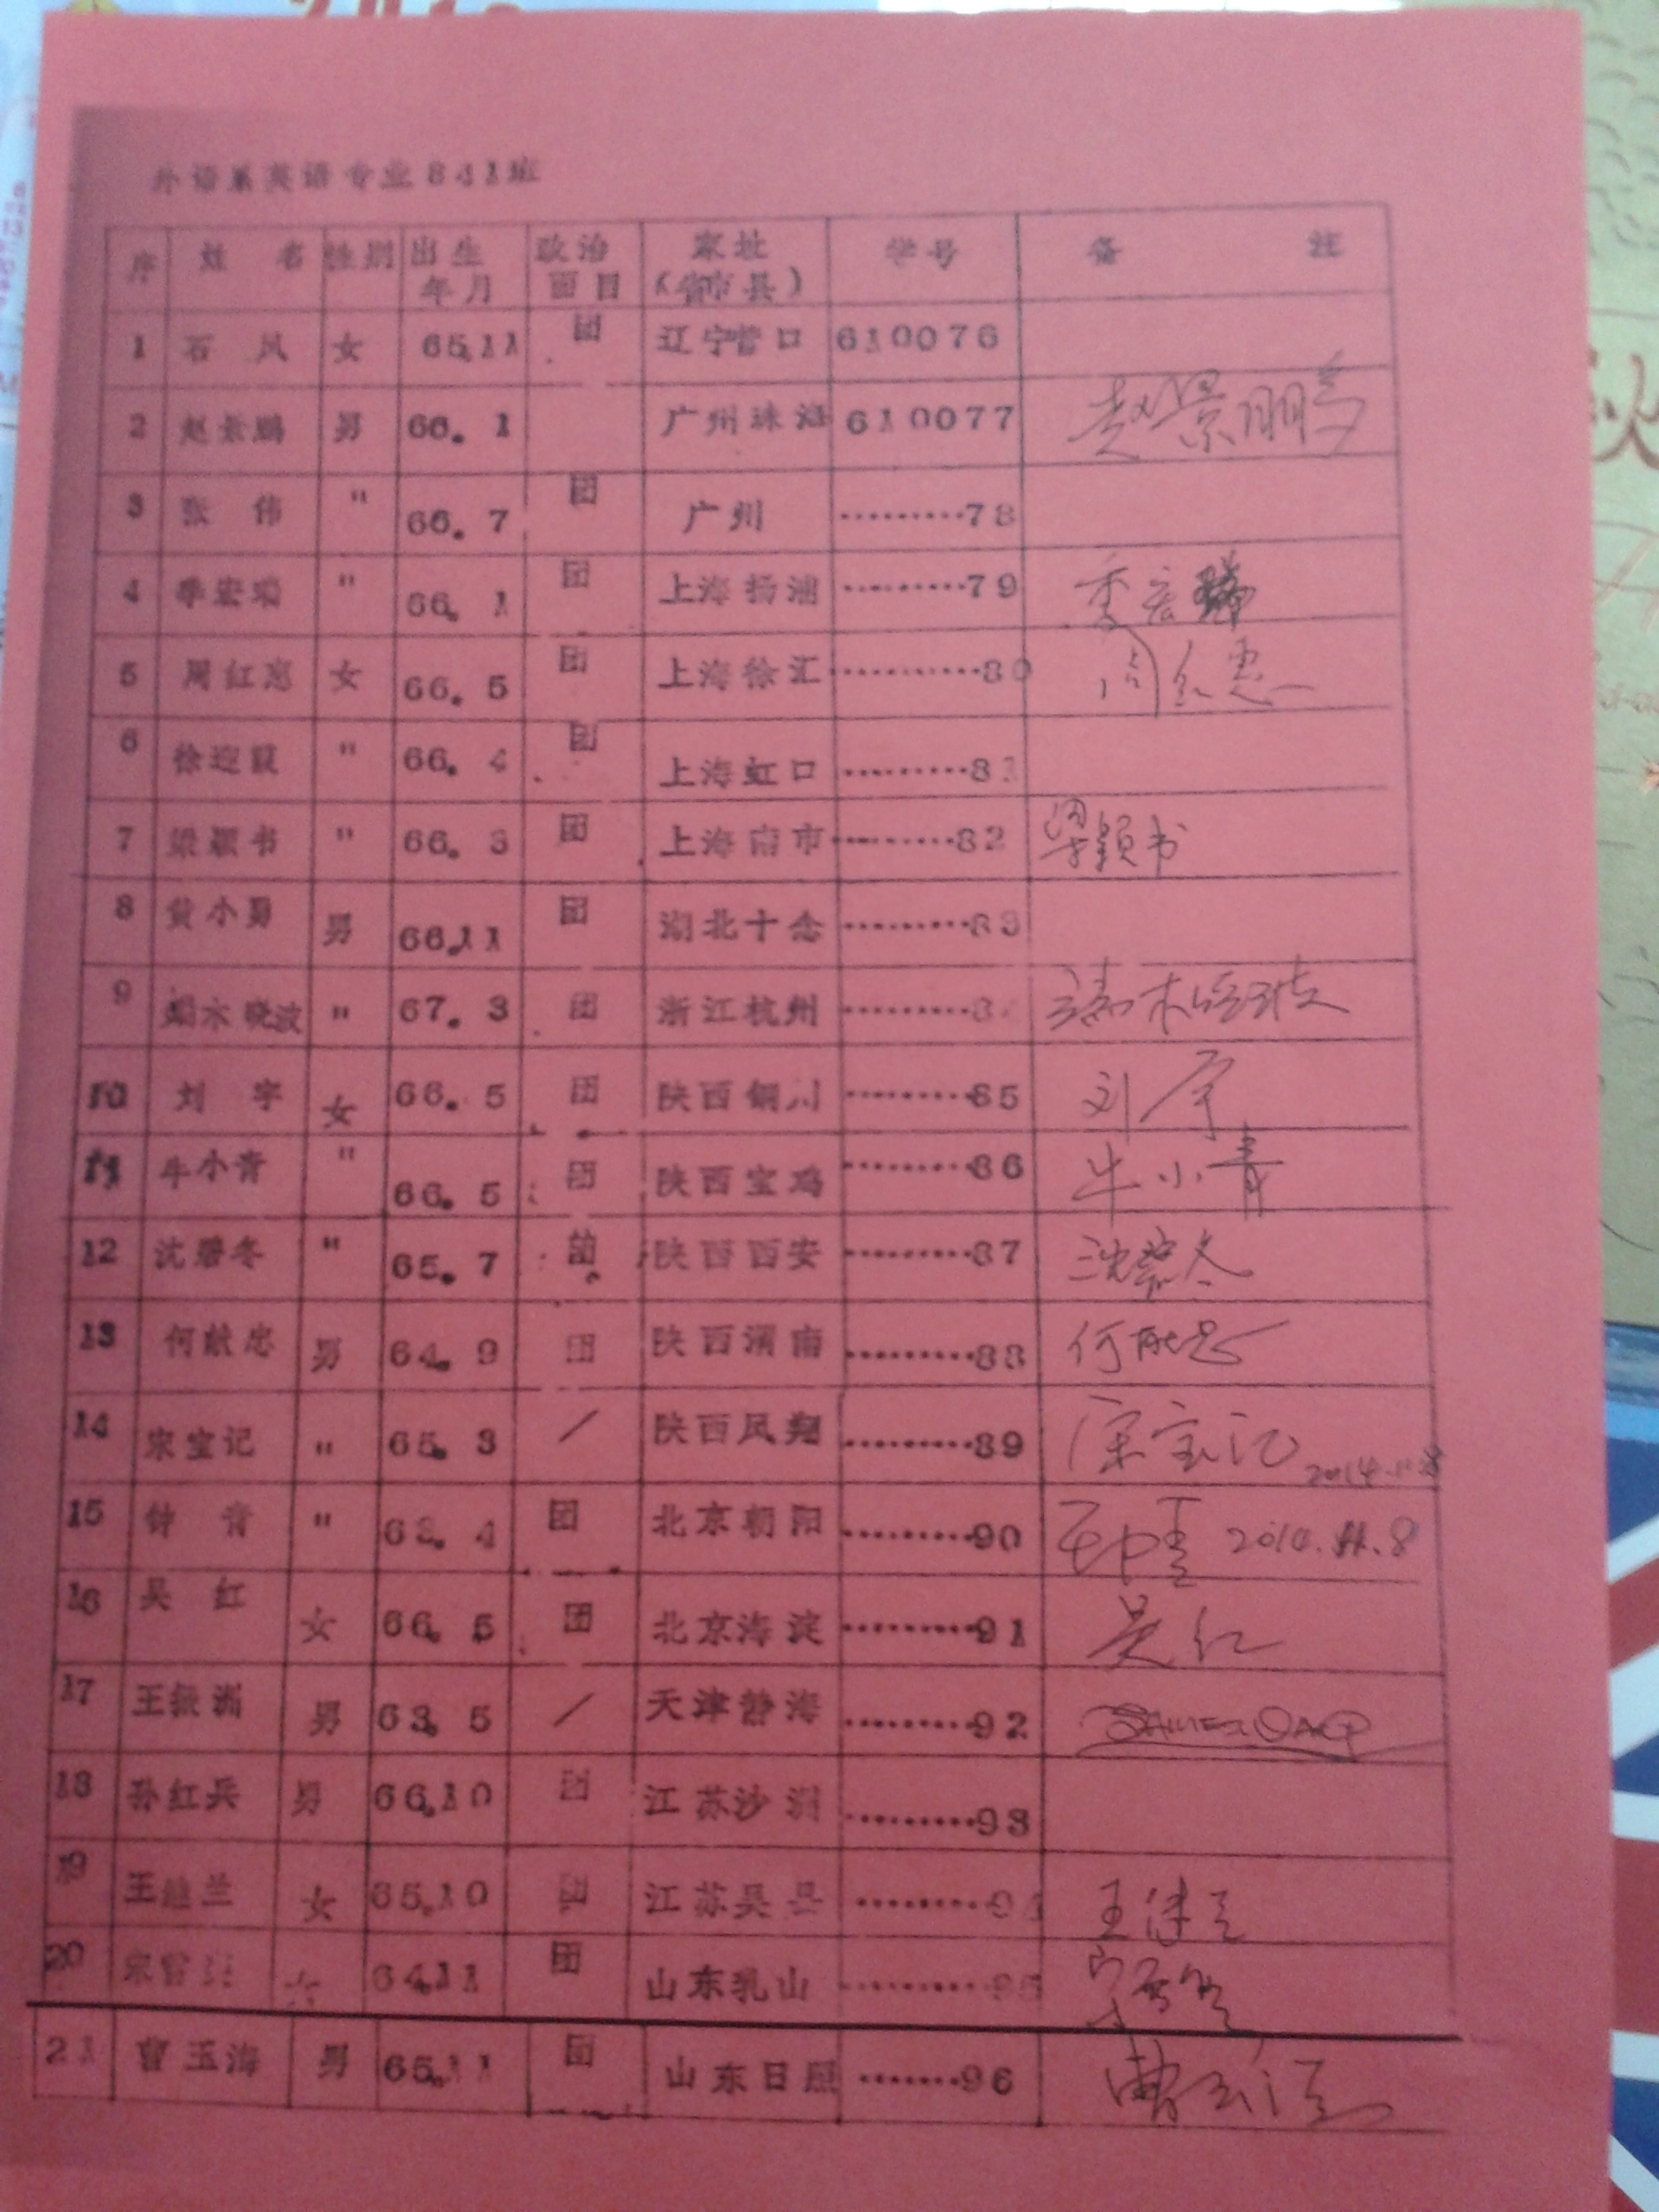 外语系英语专业841班
序 姓名 性别 出生年月 政治面目 家址(省市县) 学号 备注
1 石风 女 65.11 团 辽宁营口 610076
2 赵景鹏 男 66.1 广州珠海 610077 赵景鹏
3 张伟 " 66.7 团 广州 ·········78
4 季宏瑞 " 66.1 团 上海杨浦 ·········79 季宏
5 周红惠 女 66.5 团 上海徐汇 ···········80 周红惠
6 徐迎霞 " 66.4 团 上海虹口 ·········81
7 梁颖书 " 66.3 团 上海南市 ·········82 梁颖书
8 黄小勇 男 66.11 团 湖北十念 ·········83
9 端木晓波 " 67.3 团 浙江杭州 ·········84 端木晓波
10 刘宇 女 66.5 团 陕西铜川 ·········85 刘宇
11 牛小青 " 66.5 团 陕西宝鸡 ·········86 牛小青
12 沈碧冬 " 65.7 团 陕西西安 ·········87 沈碧冬
13 何献忠 男 64.9 团 陕西渭南 ·········88 何献忠
14 宋宝记 " 65.3 / 陕西凤翔 ·········89 宋宝记 2014.11.8
15 钟青 " 63.4 团 北京朝阳 ·········90 钟青 2014.11.8
16 吴红 女 66.5 团 北京海淀 ·········91 吴红
17 王振洲 男 63.5 / 天津静海 ·········92
18 孙红兵 男 66.10 团 江苏沙洲 ·········93
19 王健兰 女 65.10 团 江苏吴县 ·········94 王健兰
20 宋 女 64.11 团 山东乳山 ·········95
21 曹玉海 男 65.11 团 山东日照 ·······96 曹玉海